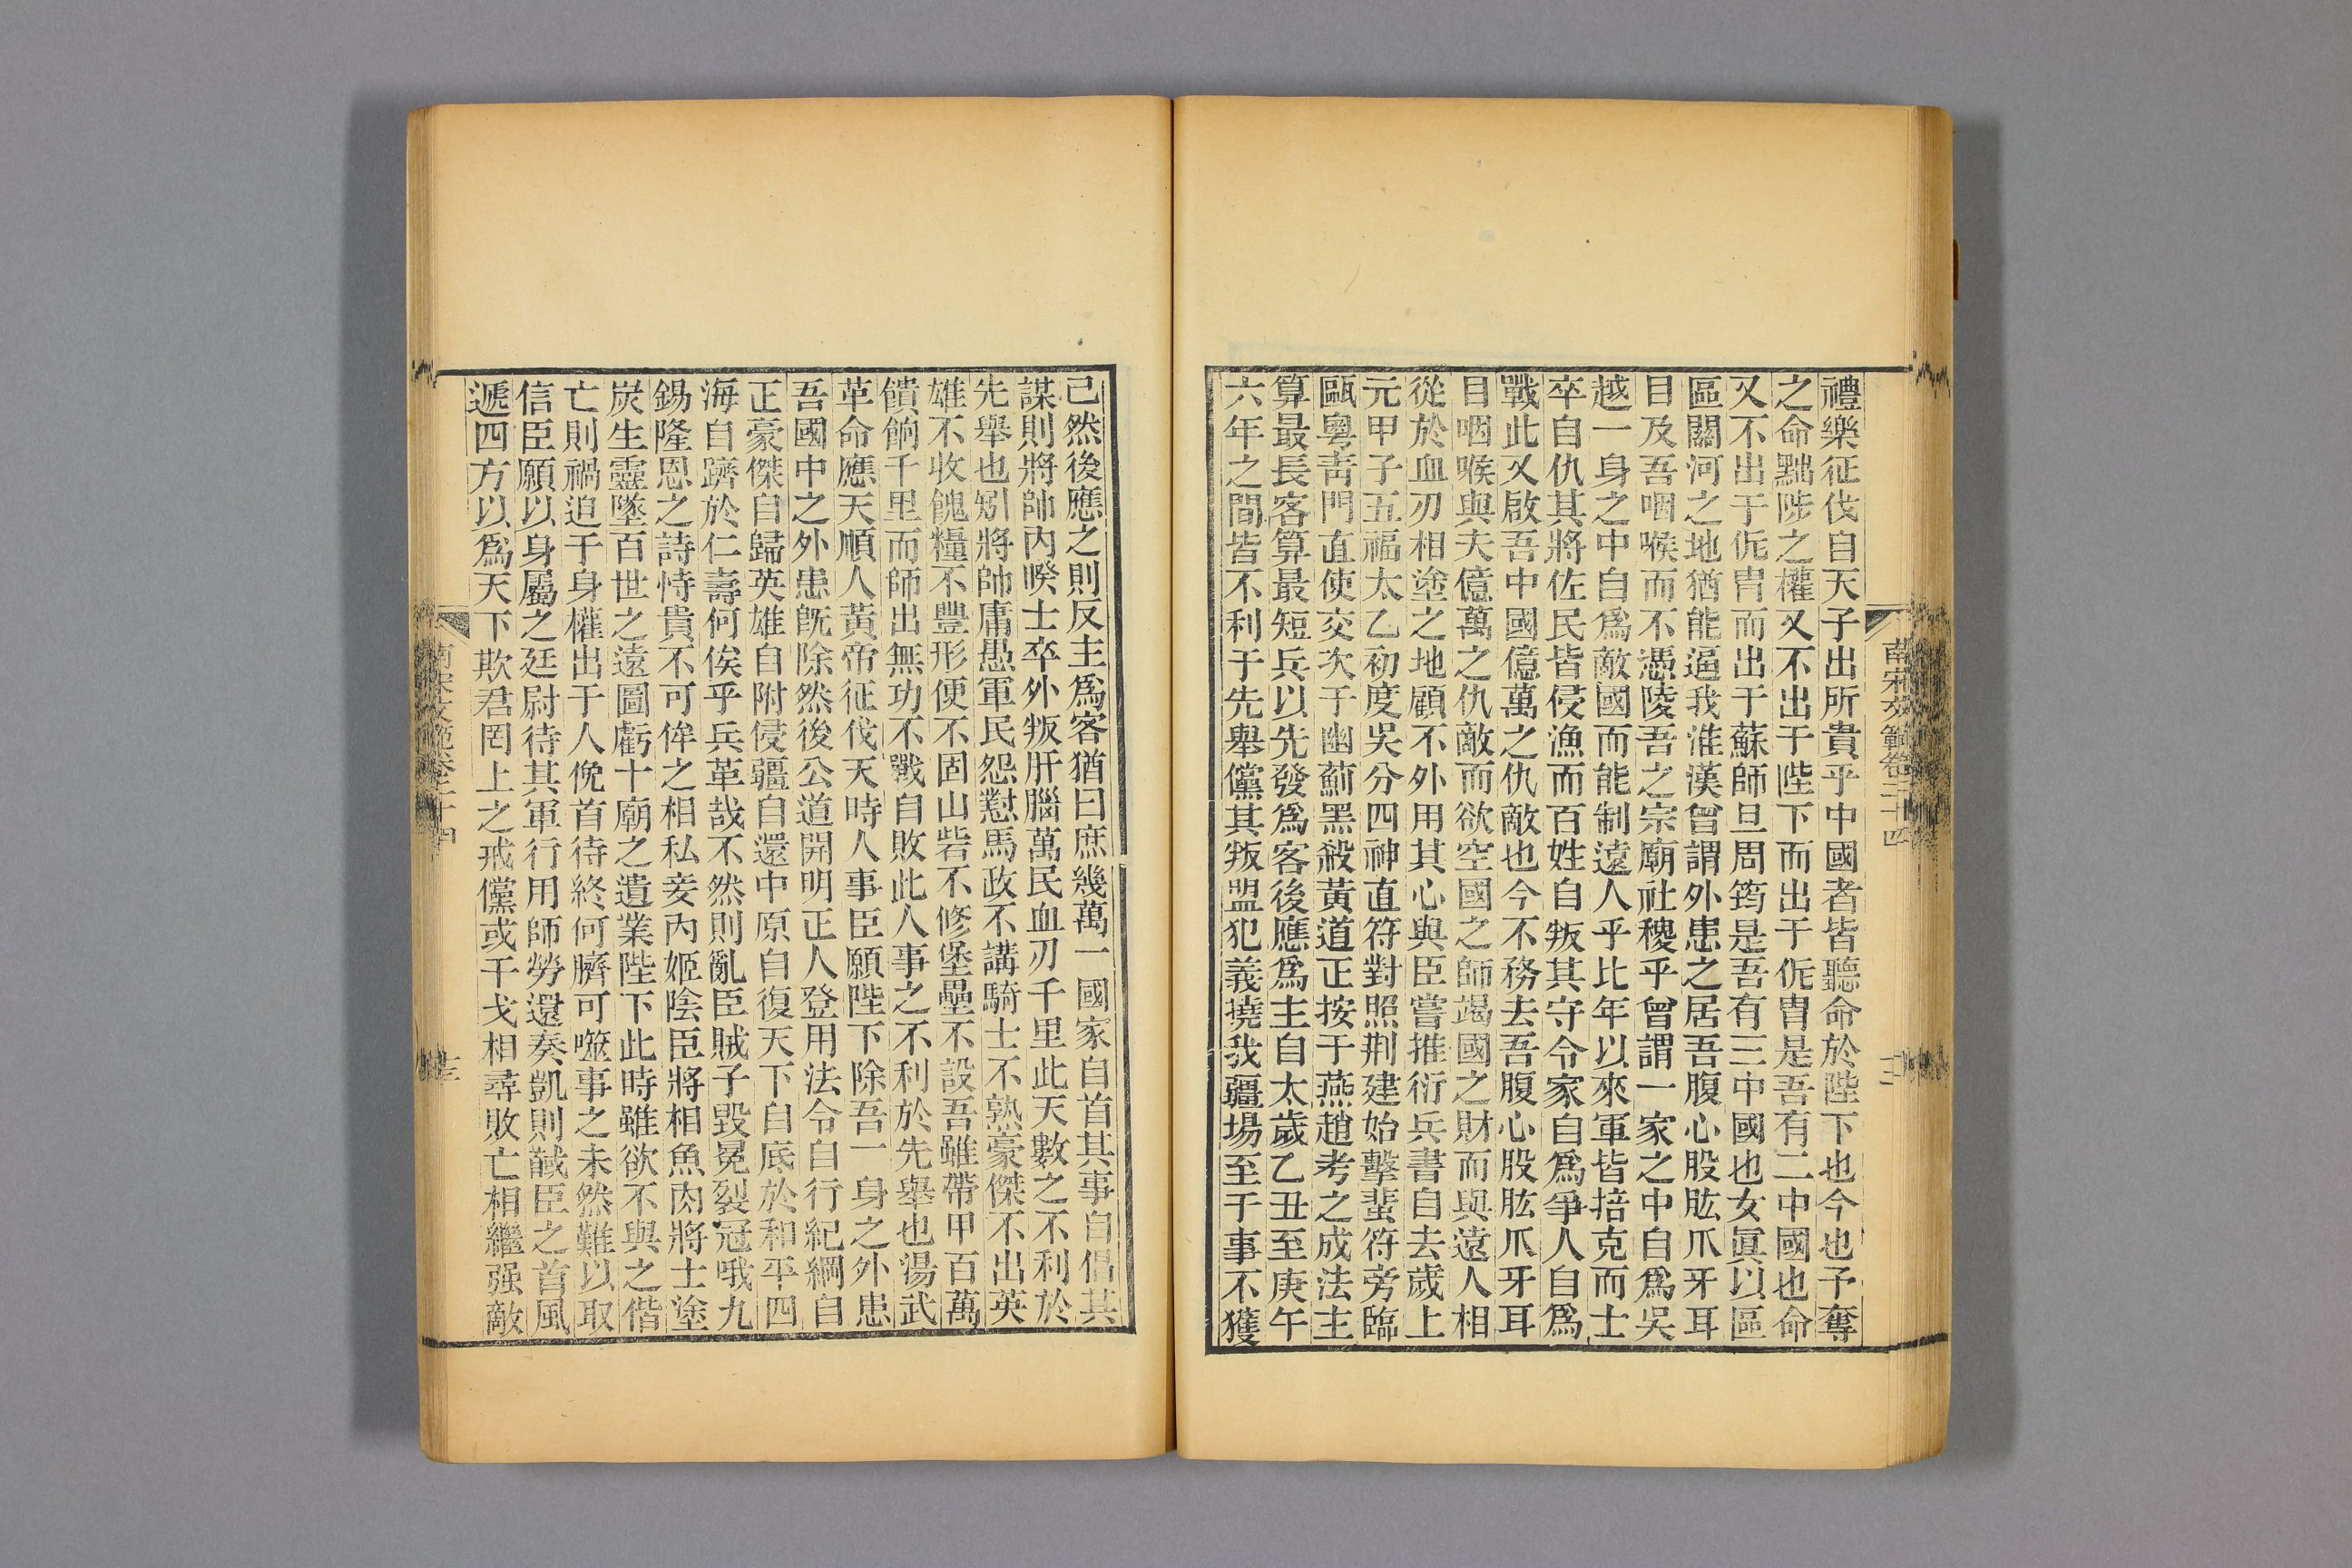 禮樂征伐自天子出所貴乎中國者皆聽命於陛下也今也予奪
之命黜陟之權又不出于陛下而出于侂胄是吾有二中國也命
又不出于侂胄而出于蘇師旦周筠是吾有三中國也女眞以區
區關河之地猶能逼我淮漢曾謂外患之居吾腹心股肱爪牙耳
目及吾咽喉而不憑陵吾之宗廟社稷乎曾謂一家之中自爲吳
越一身之中自爲敵國而能制遠人乎比年以來軍皆掊克而士
卒自仇其將佐民皆侵漁而百姓自叛其守令家自爲爭人自爲
戰此又啟吾中國億萬之仇敵也今不務去吾腹心股肱爪牙耳
目咽喉與夫億萬之仇敵而欲空國之師竭國之財而與遠人相
從於血刃相塗之地顧不外用其心與臣嘗推衍兵書自去歲上
元甲子五福太乙初度吳分四神直符對照荆建始擊蜚符旁臨
甌粵靑門直使交次于幽薊黑殺黃道正按于燕趙考之成法主
算最長客算最短兵以先發爲客後應爲主自太歲乙丑至庚午
六年之間皆不利于先舉儻其叛盟犯義撓我疆場至于事不獲
己然後應之則反主爲客猶曰庶幾萬一國家自首其事自倡其
謀則將帥內暌士卒外叛肝腦萬民血刃千里此天數之不利於
先舉也矧將帥庸愚軍民怨懟馬政不講騎士不熟豪傑不出英
雄不收餽糧不豐形便不固山砦不修堡壘不設吾雖帶甲百萬
饋餉千里而師出無功不戰自敗此人事之不利於先舉也湯武
革命應天順人黃帝征伐天時人事臣願陛下除吾一身之外患
吾國中之外患旣除然後公道開明正人登用法令自行紀綱自
正豪傑自歸英雄自附侵疆自還中原自復天下自底於和平四
海自躋於仁壽何俟乎兵革哉不然則亂臣賊子毀冕裂冠哦九
錫隆恩之詩恃貴不可侔之相私妾內姬陰臣將相魚肉將士塗
炭生靈墜百世之遠圖虧十廟之遺業陛下此時雖欲不與之偕
亡則禍迫于身權出于人俛首待終何臍可噬事之未然難以取
信臣願以身屬之廷尉待其軍行用師勞還奏凱則馘臣之首風
遞四方以爲天下欺君罔上之戒儻或干戈相尋敗亡相繼强敵
南宋文範卷二十四